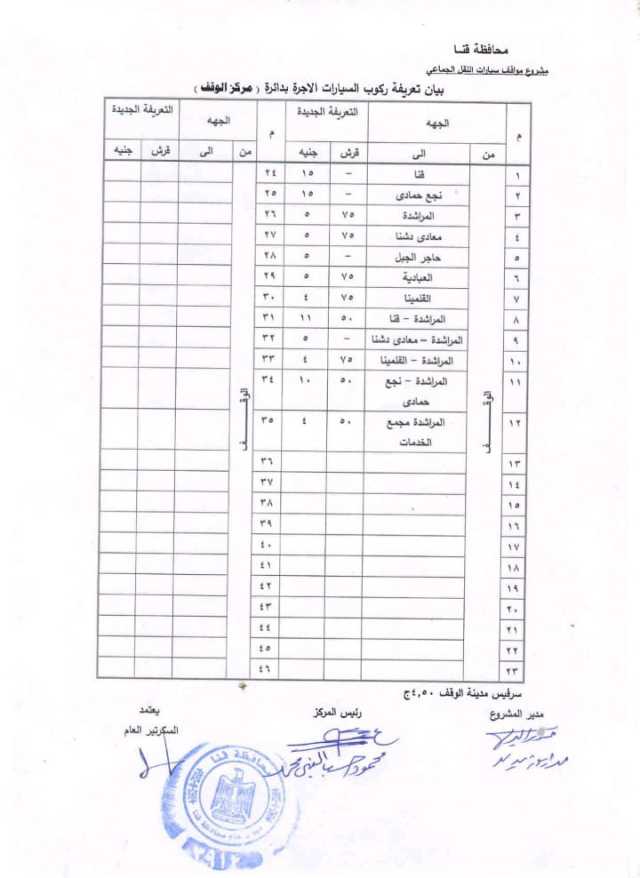 محافظة قنا
مشروع مواقف سيارات النقل الجماعي
بيان تعريفة ركوب السيارات الاجرة بدائرة ( مركز الوقف )
م الجهه التعريفة الجديدة م الجهه التعريفة الجديدة
من الى قرش جنيه من الى قرش جنيه
الوقف
الوقف
١ قنا – ١٥ ٢٤
٢ نجع حمادى – ١٥ ٢٥
٣ المراشدة ٧٥ ٥ ٢٦
٤ معادى دشنا ٧٥ ٥ ٢٧
٥ حاجر الجبل – ٥ ٢٨
٦ العبادية ٧٥ ٥ ٢٩
٧ القلمينا ٧٥ ٤ ٣٠
٨ المراشدة – قنا ٥٠ ١١ ٣١
٩ المراشدة – معادى دشنا – ٥ ٣٢
١٠ المراشدة – القلمينا ٧٥ ٤ ٣٣
١١ المراشدة – نجع ٥٠ ١٠ ٣٤
حمادى
١٢ المراشدة مجمع ٥٠ ٤ ٣٥
الخدمات
١٣ ٣٦
١٤ ٣٧
١٥ ٣٨
١٦ ٣٩
١٧ ٤٠
١٨ ٤١
١٩ ٤٢
٢٠ ٤٣
٢١ ٤٤
٢٢ ٤٥
٢٣ ٤٦
سرفيس مدينة الوقف ٤,٥٠ج
مدير المشروع رئيس المركز يعتمد
السكرتير العام
محافظة قنا